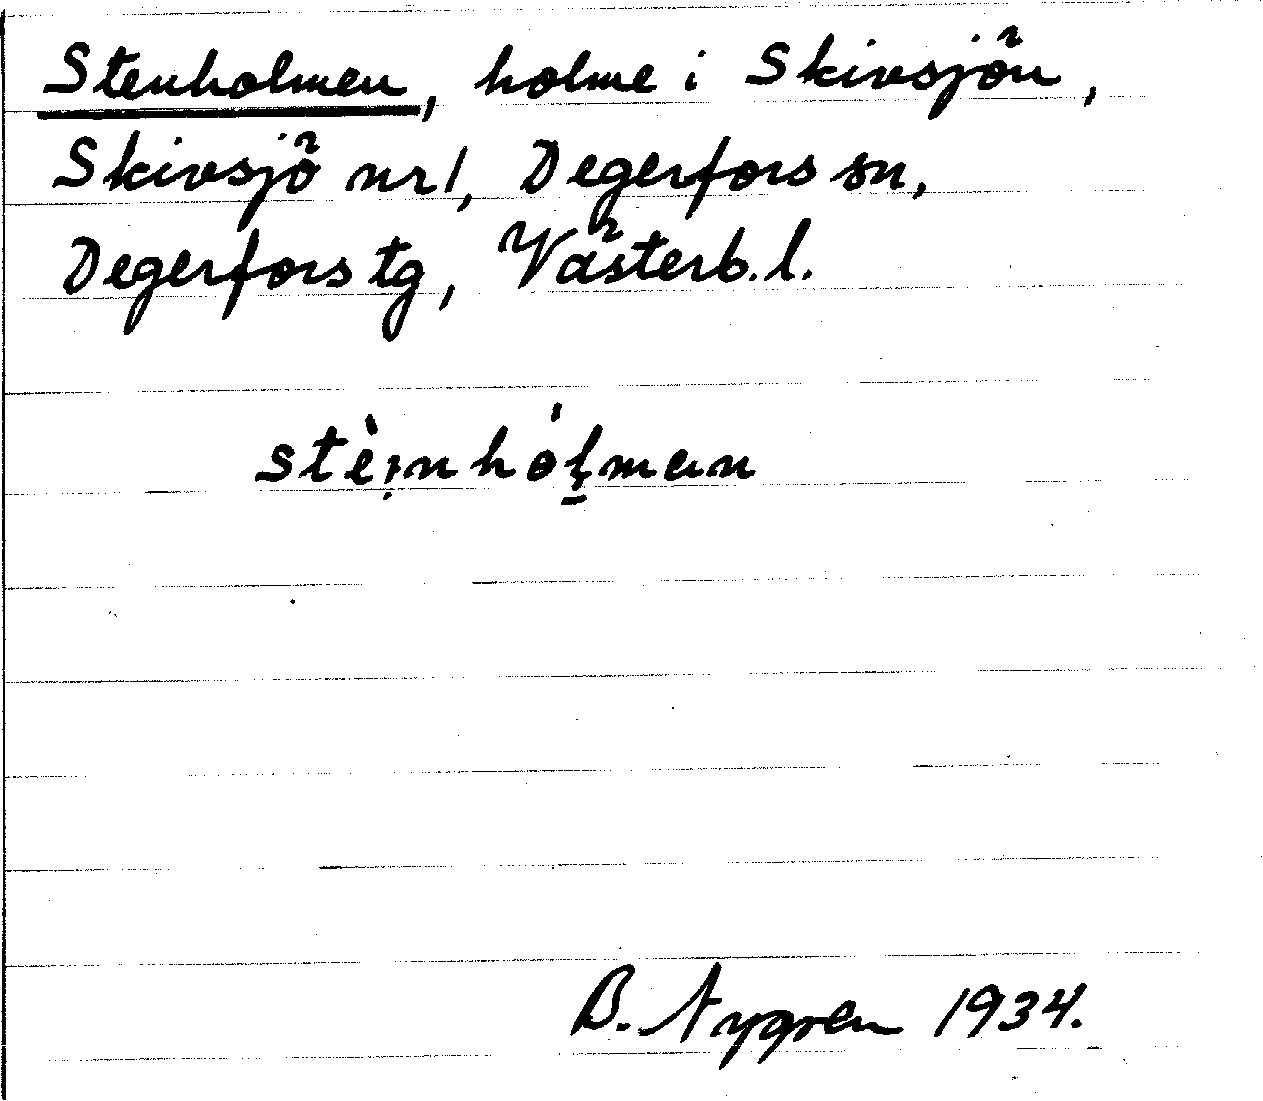 Stenholmen, holme i Skivsjön,
Skivsjö nr 1, Degerfors sn,
Degerfors tg, Västerb. l.
stèi̩nhól̠man
B. Nygren 1934.